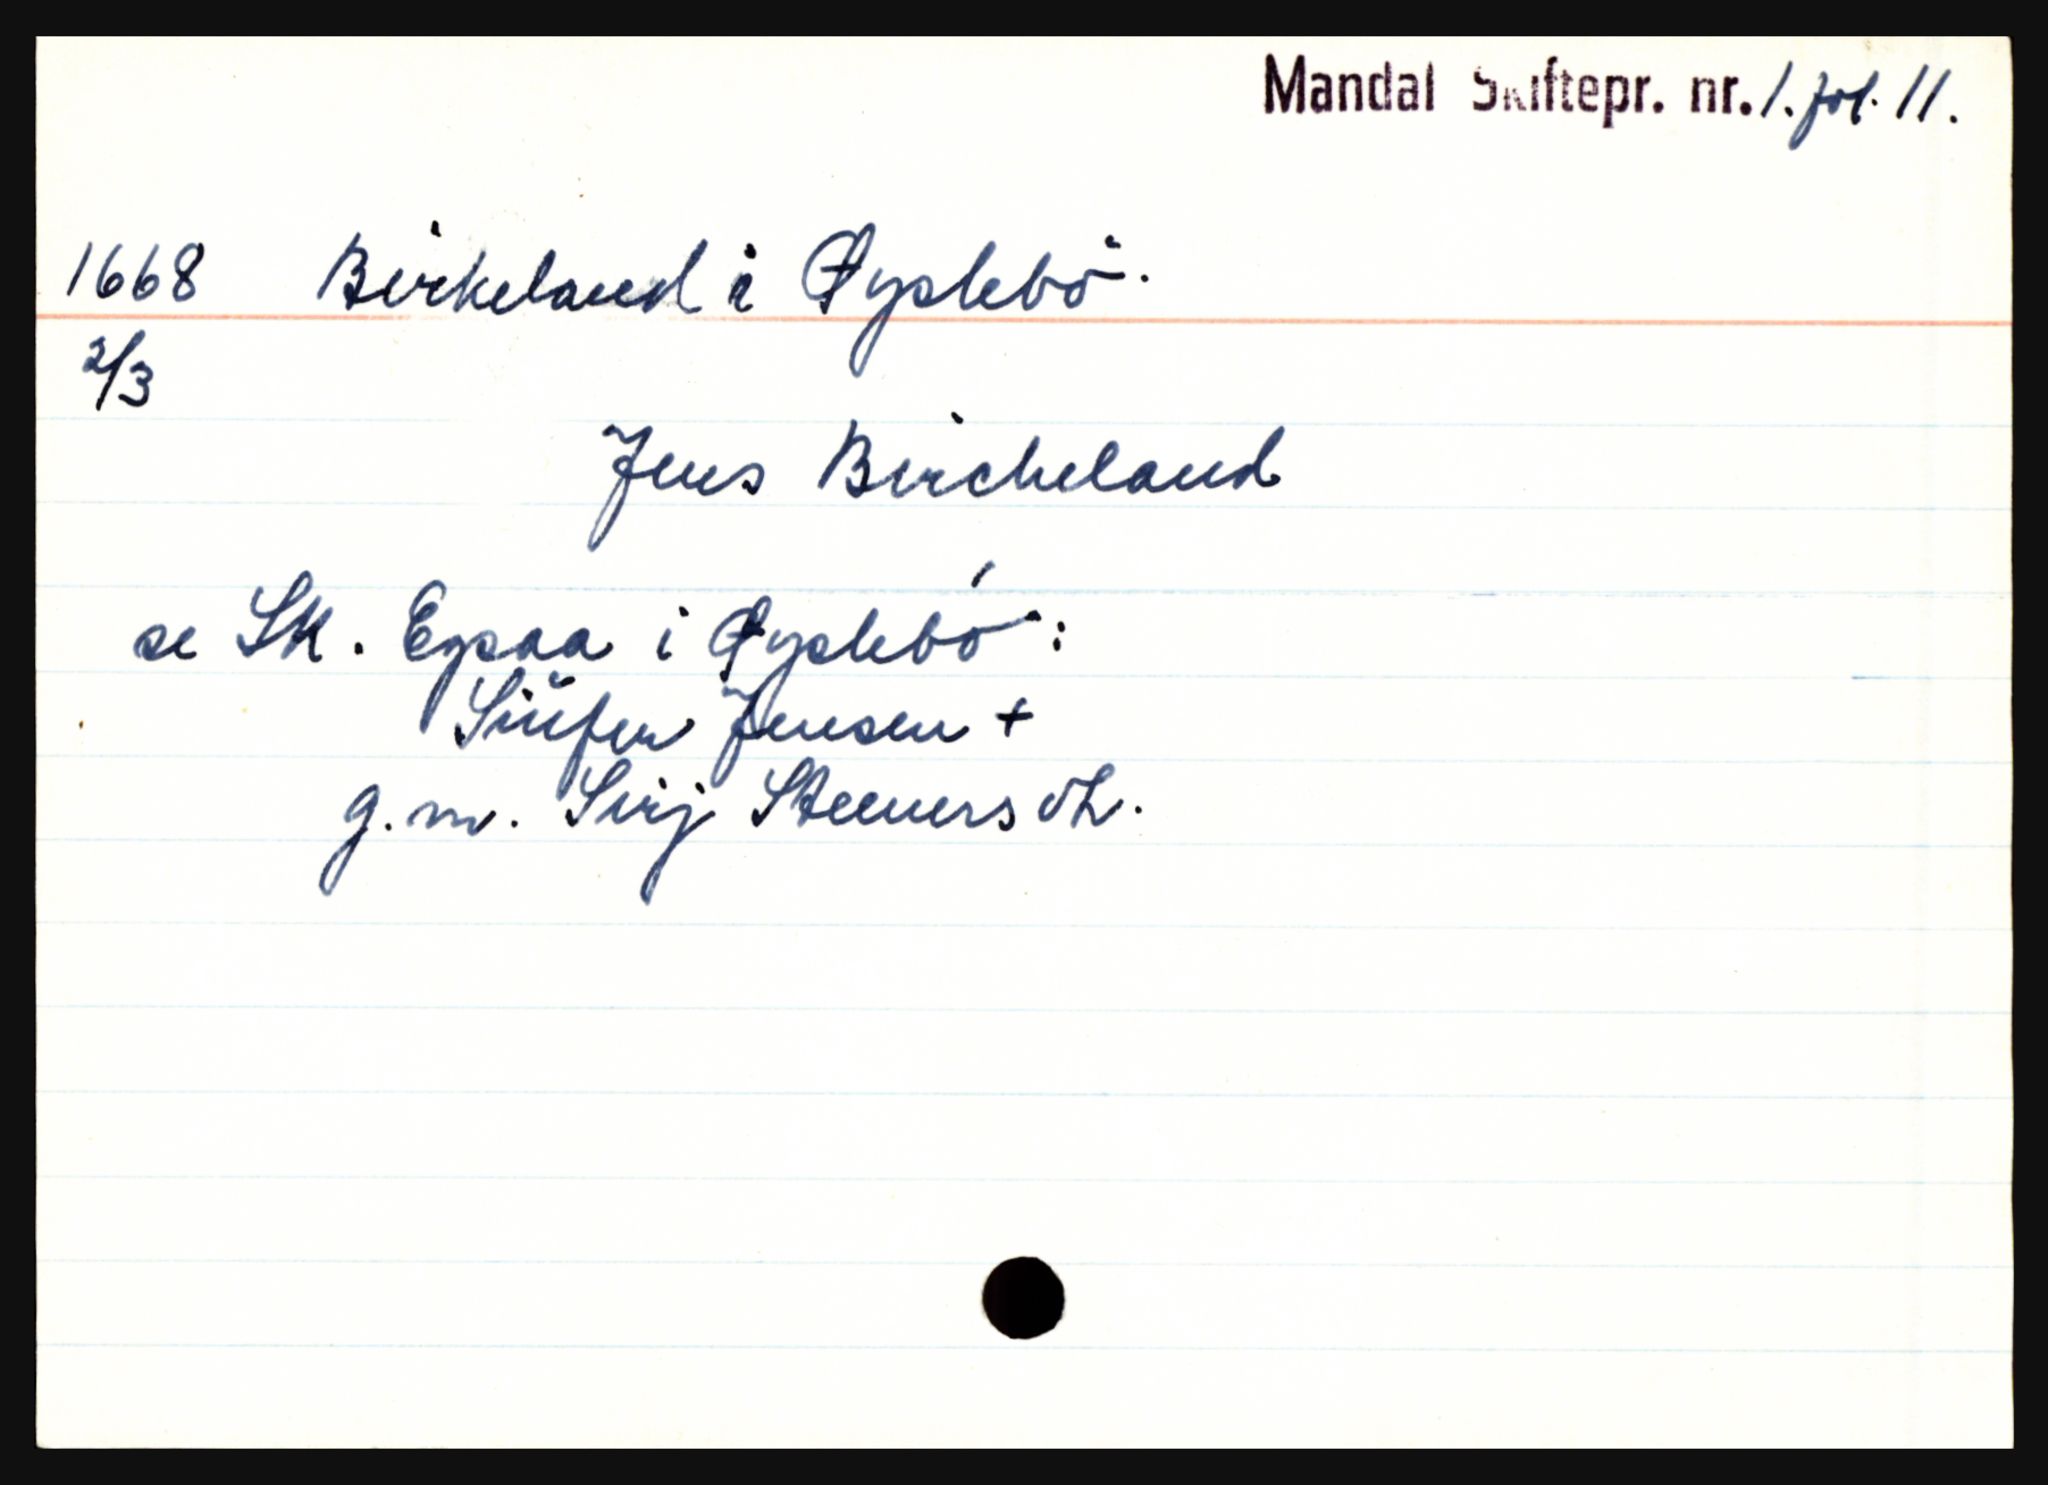 Mandal Skiftepr. nr. 1. fol. 11.
1668 Birkeland i Øyslebö.
2/3
Jens Bircheland
se Sk. Eysaa i Øyslebö:
Siüfer Jensen +
g. m. Sirj Steenersdt.